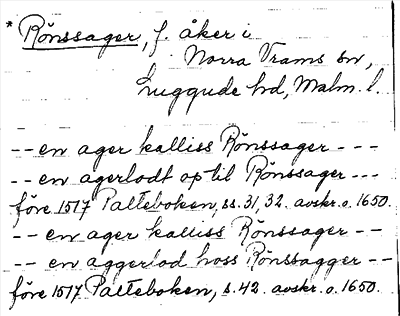 * Rönssager, f. åker i
Norra Vrams sn,
Luggude hd, Malm. l.
-- en ager kalliss Rönssager ---
-- en agerlodt op til Rönssager ---
före 1517 Palteboken, ss. 31, 32. avskr. o. 1650.
-- en ager kalliss Rönssager --
-- en aggerlod hoss Rönssagger --
före 1517 Palteboken, s. 42. avskr. o. 1650.